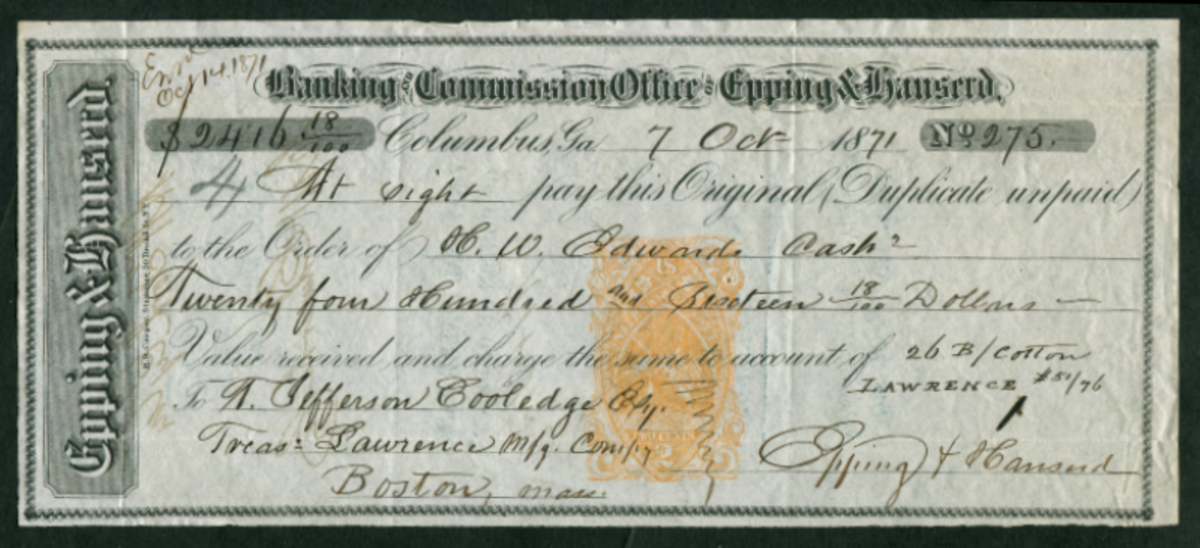 Epping & Hanserd.
End
Oct 14. 1871
Banking and Commission Office of Epping & Hanserd.
$2416 18/100 Columbus, Ga 7 Oct 1871 No 275.
4 At sight pay this Original (Duplicate unpaid)
to the Order of H. W. Edwards Cashr
Twenty four Hundred and Sixteen 18/100 Dollars
Value received and charge the same to account of 26 B/Cotton
LAWRENCE #51/76
To T. Jefferson Cooledge Esq.
Treasr Lawrence Mfg. Compy
Epping & Hanserd
Boston, Mass.